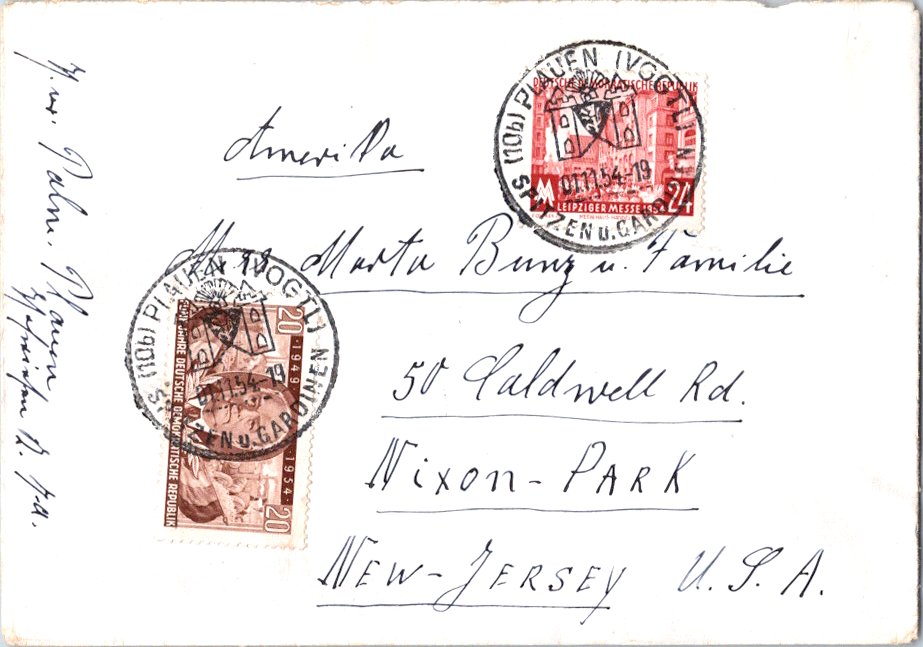 Amerika
Mrs Marta Bunz u. Familie
50 Caldwell Rd.
Nixon-Park
New-Jersey U.S.A.
Plauen
(10b) PLAUEN (VOGTL) N
01.11.54-19
SPITZEN u. GARDINEN
DEUTSCHE DEMOKRATISCHE REPUBLIK
LEIPZIGER MESSE 1954
24
(10b) PLAUEN (VOGTL) N
01.11.54-19
SPITZEN u. GARDINEN
20
1949 · 1954
20
JAHRE DEUTSCHE DEMOKRATISCHE REPUBLIK